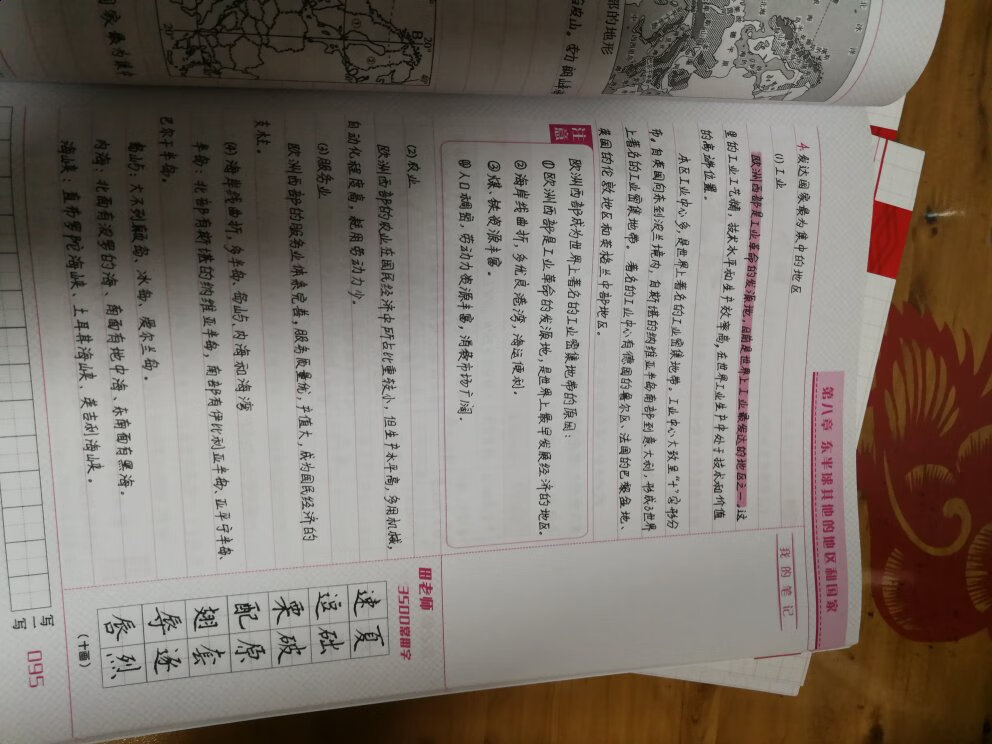 第八章 东半球其他的地区和国家
我的笔记
4.发达国家最为集中的地区
(1)工业
欧洲西部是工业革命的发源地,目前是世界上工业最发达的地区之一。这
里的工业工艺精,技术水平和生产效率高,在世界工业生产中处于技术和价值
的高端位置。
本区工业中心多,是世界上著名的工业密集地带。工业中心大致呈“十”字形分
布,自英国向东到波兰境内,自斯堪的纳维亚半岛南部到意大利,形成了世界
上著名的工业密集地带。著名的工业中心有德国的鲁尔区、法国的巴黎盆地、
英国的伦敦地区和英格兰中部地区。
注意
欧洲西部成为世界上著名的工业密集地带的原因:
①欧洲西部是工业革命的发源地,是世界上最早发展经济的地区。
②海岸线曲折,多优良港湾,海运便利。
③煤、铁资源丰富。
④人口稠密,劳动力资源丰富,消费市场广阔。
(2)农业
欧洲西部的农业在国民经济中所占比重较小,但生产水平高,多用机械,
自动化程度高,耗用劳动力少。
(3)服务业
欧洲西部的服务业体系完善,服务质量优,产值大,成为国民经济的
支柱。
(4)海岸线曲折,多半岛、岛屿、内海和海湾
半岛:北部有斯堪的纳维亚半岛,南部有伊比利亚半岛、亚平宁半岛、
巴尔干半岛。
岛屿:大不列颠岛、冰岛、爱尔兰岛。
内海:北面有波罗的海、南面有地中海、东南面有黑海。
海峡:直布罗陀海峡、土耳其海峡、英吉利海峡。
田老师
3500常用字
速 夏
逗 础
栗 破
配 原
翅 套
辱 逐
唇 烈
(十画)
写一写
095